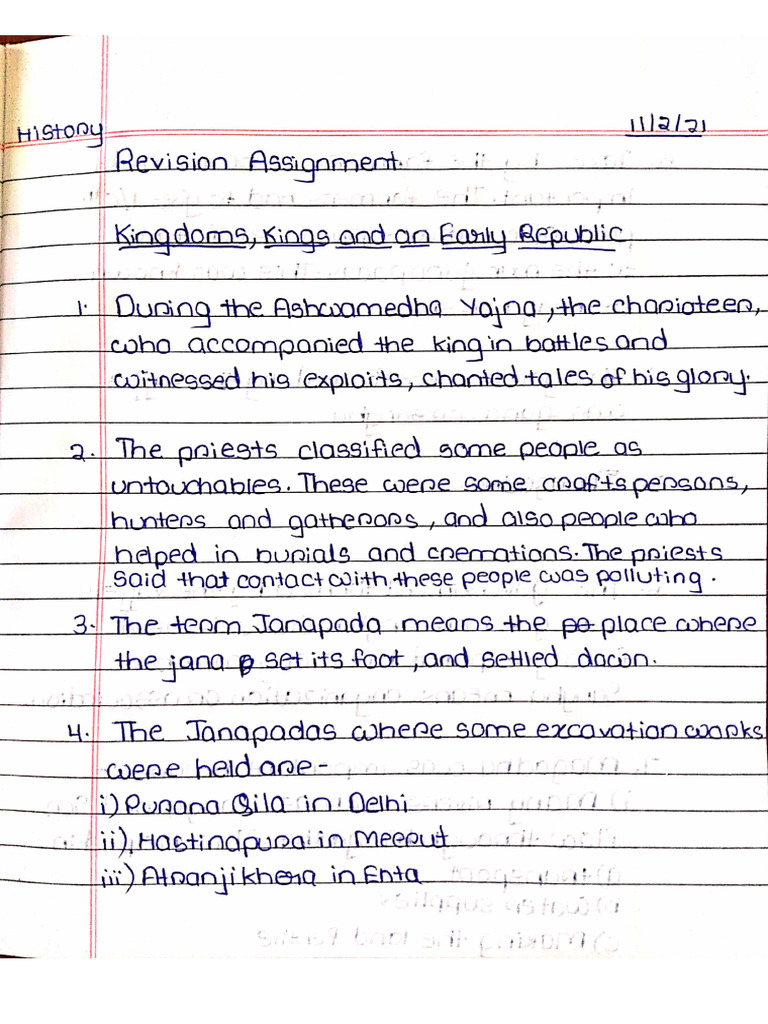 History
11/2/21
Revision Assignment.
Kingdoms, Kings and an Early Republic
1. During the Ashwamedha Yajna, the charioteer,
who accompanied the king in battles and
witnessed his exploits, chanted tales of his glory.
2. The priests classified some people as
untouchables. These were some crafts persons,
hunters and gatherors, and also people who
helped in burials and cremations. The priests
said that contact with these people was polluting.
3. The term Janapada means the place where
the jana set its foot, and settled down.
4. The Janapadas where some excavation works
were held are-
i) Purana Qila in Delhi
ii) Hastinapura in Meerut
iii) Atranjikhera in Enta